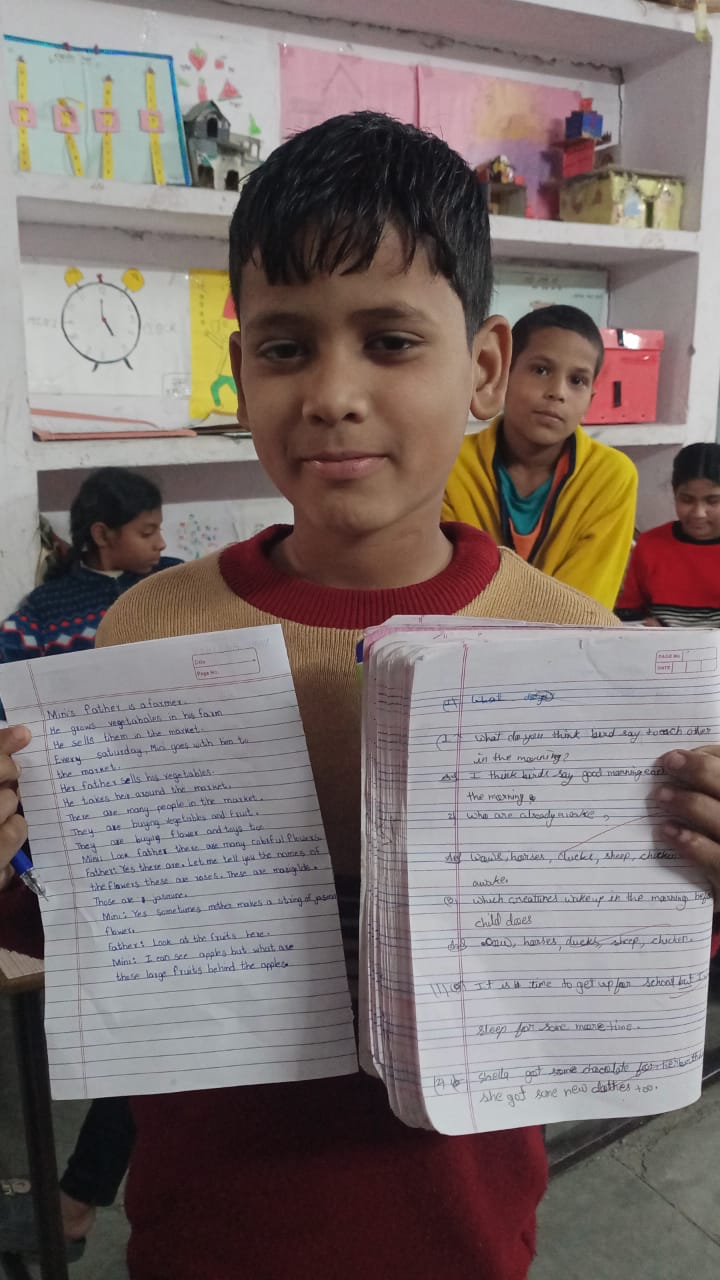 Title
Page No.
Mini's Father is a farmer.
He grows vegetabales in his farm
He sells them in the market.
Every saturday, Mini goes with him to
the market.
Her father sells his vegetables.
He takes her around the market.
There are many people in the market.
They are buying vegetables and fruit.
They are buying flower and toys too
Mini: Look father these are many colorful flowers.
Father: Yes there are. Let me tell you the names of
the flowers these are roses. These are marigolds.
Those are jasmine.
Mini: Yes sometimes mother makes a string of jasmine
flower.
Father: Look at the fruits here.
Mini: I can see apples but what are
these large fruits behind the apples.
PAGE No.
DATE
What
What do you think bird say to each other
in the morning?
I think birds say good morning
the morning
2) Who are already awake,
horses, ducks, sheep, chicken
awake.
Which creatures wake up in the morning
child does
Cow, horses, ducks, sheep, chicken.
It is time to get up for school but I
sleep for some more time.
Sheila got some chocolate for her
she got some new clothes too.